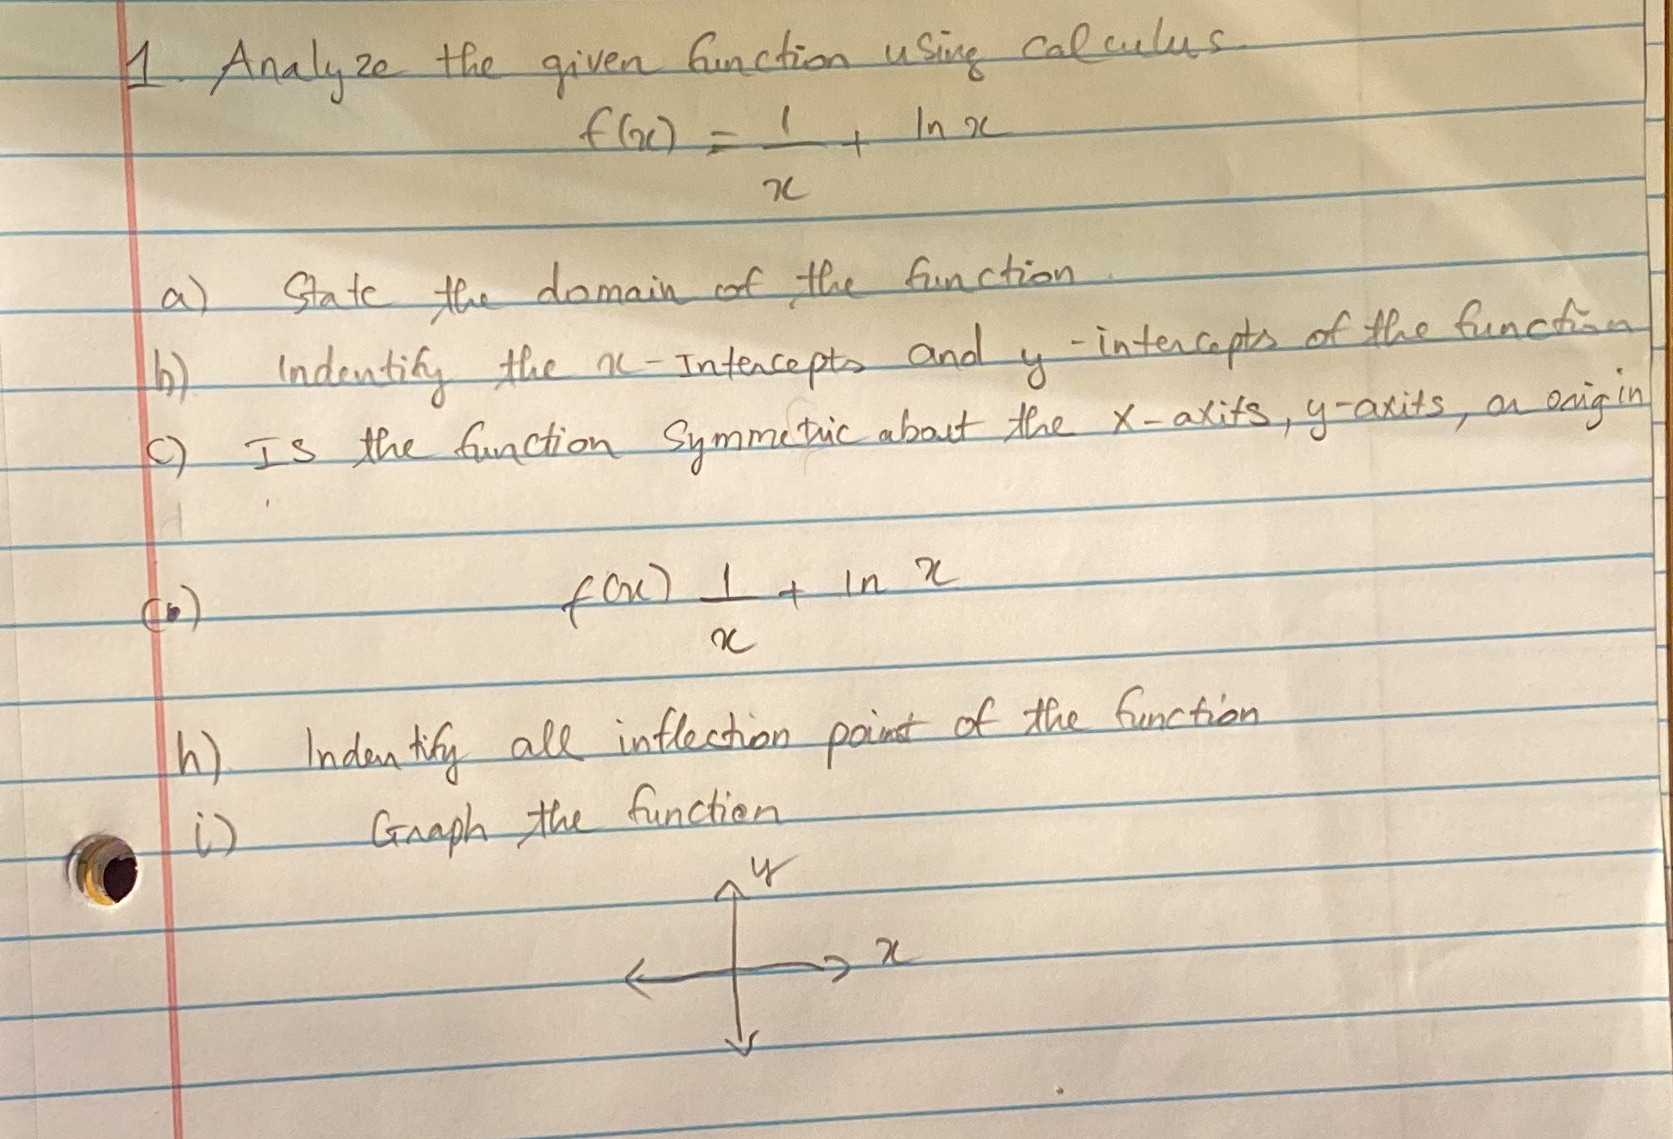 1. Analyze the given function using calculus.
f(x) = 1/x + ln x
a) State the domain of the function.
b) Indentify the x-Intercepts and y-intercepts of the function
c) Is the function Symmetric about the x-axits, y-axits, or origin
f(x) 1/x + ln x
h) Indentify all inflection point of the function
i) Graph the function
y
x